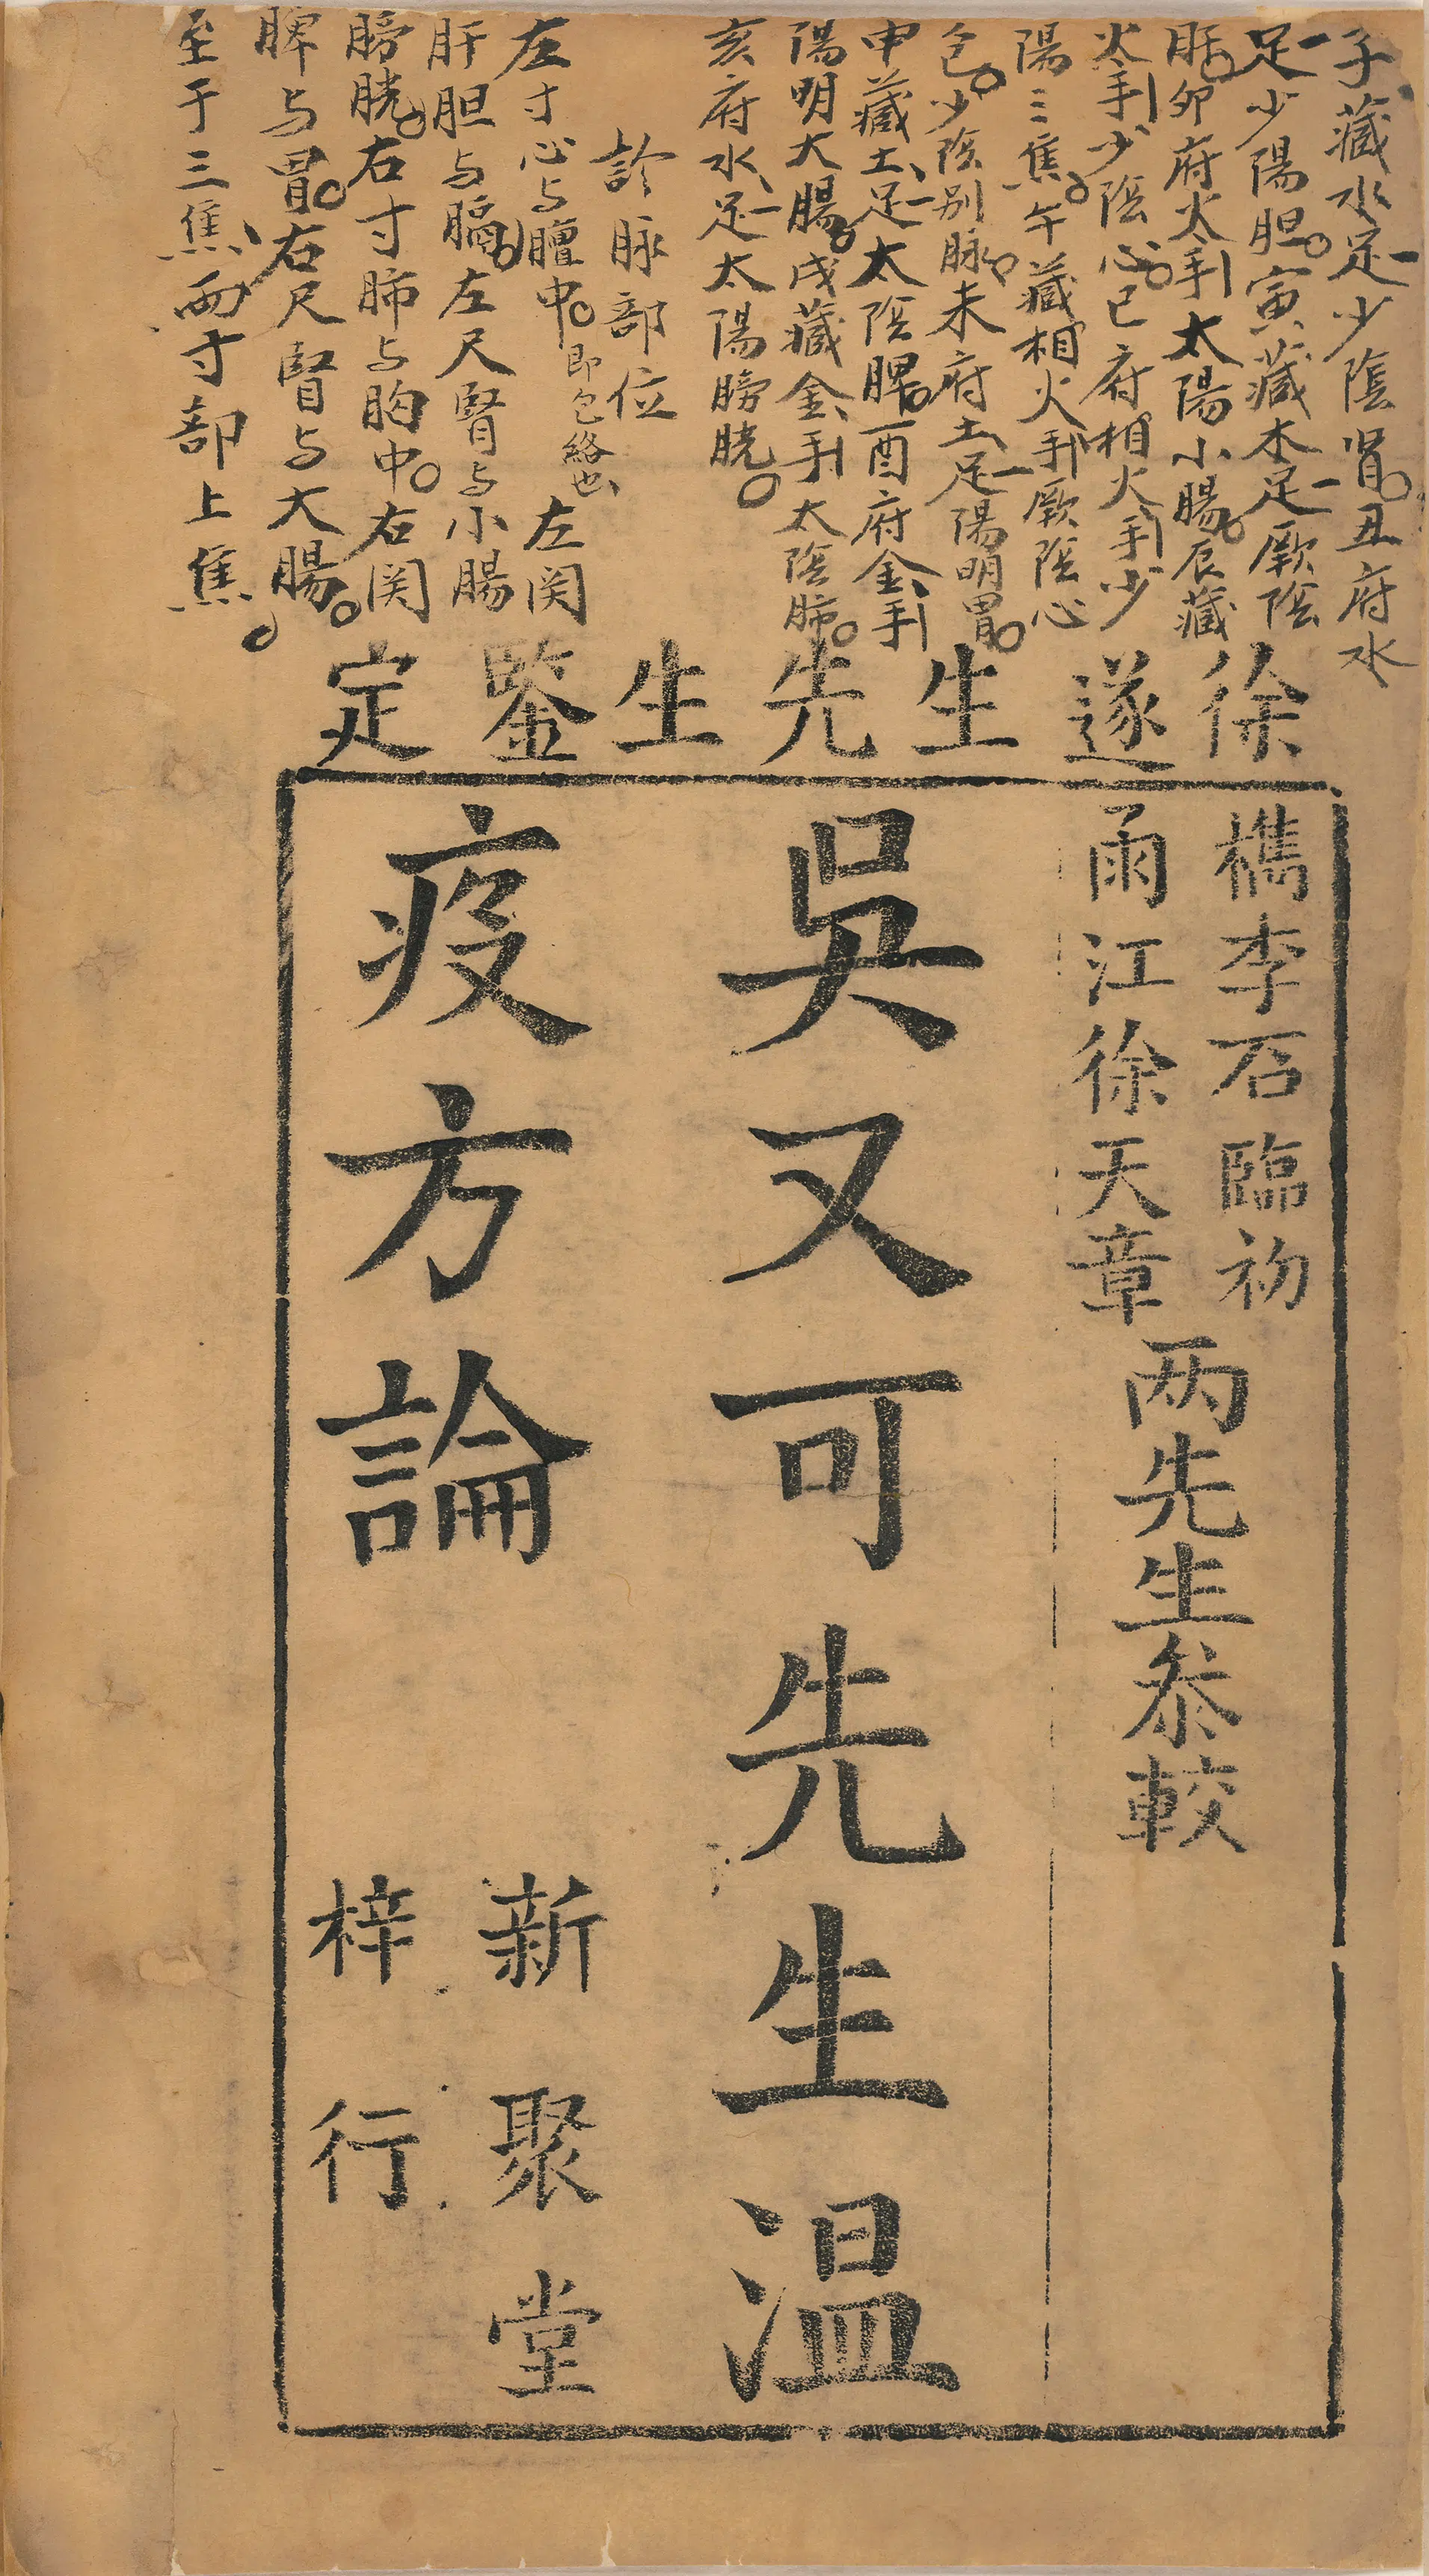 子藏水足少陰肾。丑府水
足少陽胆。寅藏木足厥陰
肝。卯府火手太陽小腸。辰藏
火手少陰心。巳府相火手少
陽三焦。午藏相火手厥陰心
包。少陰别脉。未府土足陽明胃。
申藏土足太陰脾。酉府金手
陽明大腸。戌藏金手太陰肺。
亥府水足太陽膀胱。
診脉部位
左寸心与膻中。即包絡也左関
肝胆与膈。左尺腎与小腸
膀胱。右寸肺与胸中。右関
脾与胃。右尺腎与大腸。
至于三焦两寸部上焦。
徐遂生先生鑒定
檇李石臨初
雨江徐天章
两先生叅較
吳又可先生温
疫方論
新聚堂
梓行